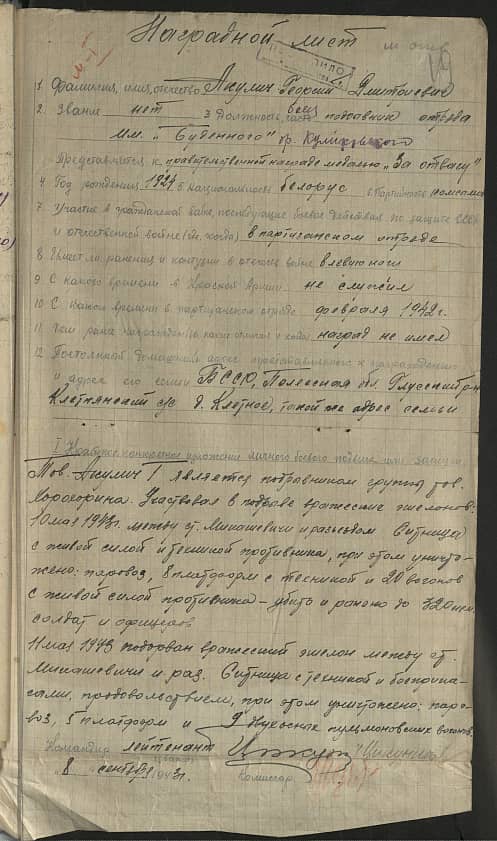 Наградной лист
1 Фамилия, имя, отчество Акулич Георгий Дмитриевич
2. Звание нет 3 Должность, часть подрывник отряда
им. "Буденного" бр. Куликовского
Представляется к правительственной награде медалью "За отвагу"
4 Год рождения 1924 5 Национальность белорус 6 Партийность комсом
7 Участие в гражданской войне, последующие боевые действия по защите СССР
и отечественной войне (где, когда) в партизанском отряде
8 Имеет ли ранения и контузии в отечеств войне в левую ногу
9 С какого времени в Красной Армии не служил
10 С какого времени в партизанском отряде февраля 1942 г.
11 Чем ранее награжден (за какие отличия и когда) наград не имел
12 Постоянный домашний адрес представляемого к награждению
и адрес его семьи БССР, Полесская обл. Глусский р-н
Клетнянский с/с д. Клетное, такой же адрес семьи
I Краткое конкретное изложение личного боевого подвига или заслуги
Тов. Акулич Г является подрывником группы тов.
Участвовал в подрыве вражеских эшелонов:
10 мая 1943г. между ст. Микашевичи и разъездом Ситница
с живой силой и техникой противника, при этом уничто-
жено: паровоз, 8 платформ с техникой и 20 вагонов
с живой силой противника – убито и ранено до 320 нем.
солдат и офицеров
11 мая 1943 подорван вражеский эшелон между ст.
Микашевичи и раз. Ситница с техникой и боеприпа-
сами, продовольствием, при этом уничтожено: паро-
воз, 5 платформ и 9 двухосных пульмановских вагонов
Командир лейтенант
"8" сентября 1943 г. Комиссар